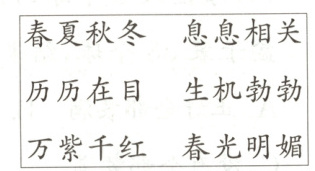 春夏秋冬 息息相关
历历在目 生机勃勃
万紫千红 春光明媚